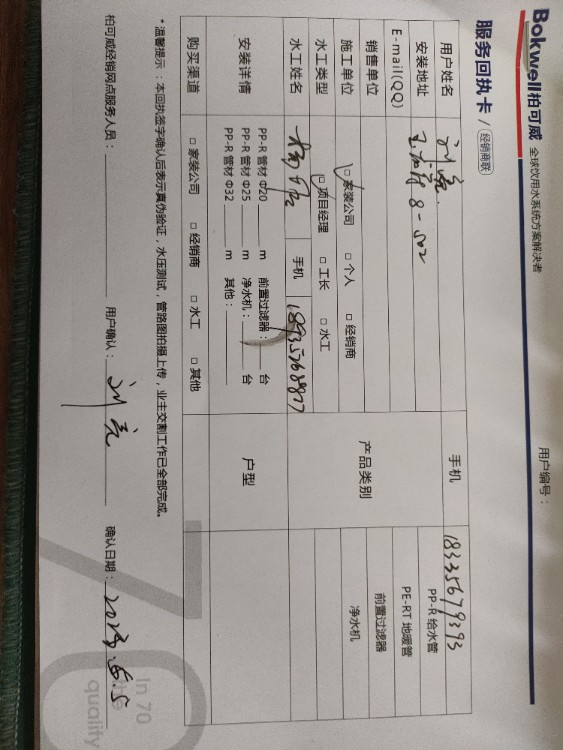 Bokwell柏可威 全球饮用水系统方案解决者
用户编号：
服务回执卡 / 经销商联
用户姓名 刘亮 手机 18335679393
安装地址 8-502
E-mail(QQ)
销售单位
施工单位 □ 家装公司 □ 个人 □ 经销商
水工类型 □ 项目经理 □ 工长 □ 水工
水工姓名 手机
产品类别
PP-R 给水管
PE-RT 地暖管
前置过滤器
净水机
安装详情
PP-R 管材 Φ20 m 前置过滤器： 台
PP-R 管材 Φ25 m 净水机： 台
PP-R 管材 Φ32 m 其他：
户型
购买渠道 □ 家装公司 □ 经销商 □ 水工 □ 其他
*温馨提示：本回执签字确认后表示真伪验证，水压测试，管路图拍摄上传，业主交割工作已全部完成。
柏可威经销网点服务人员： 用户确认： 刘亮 确认日期：
In 70
quality